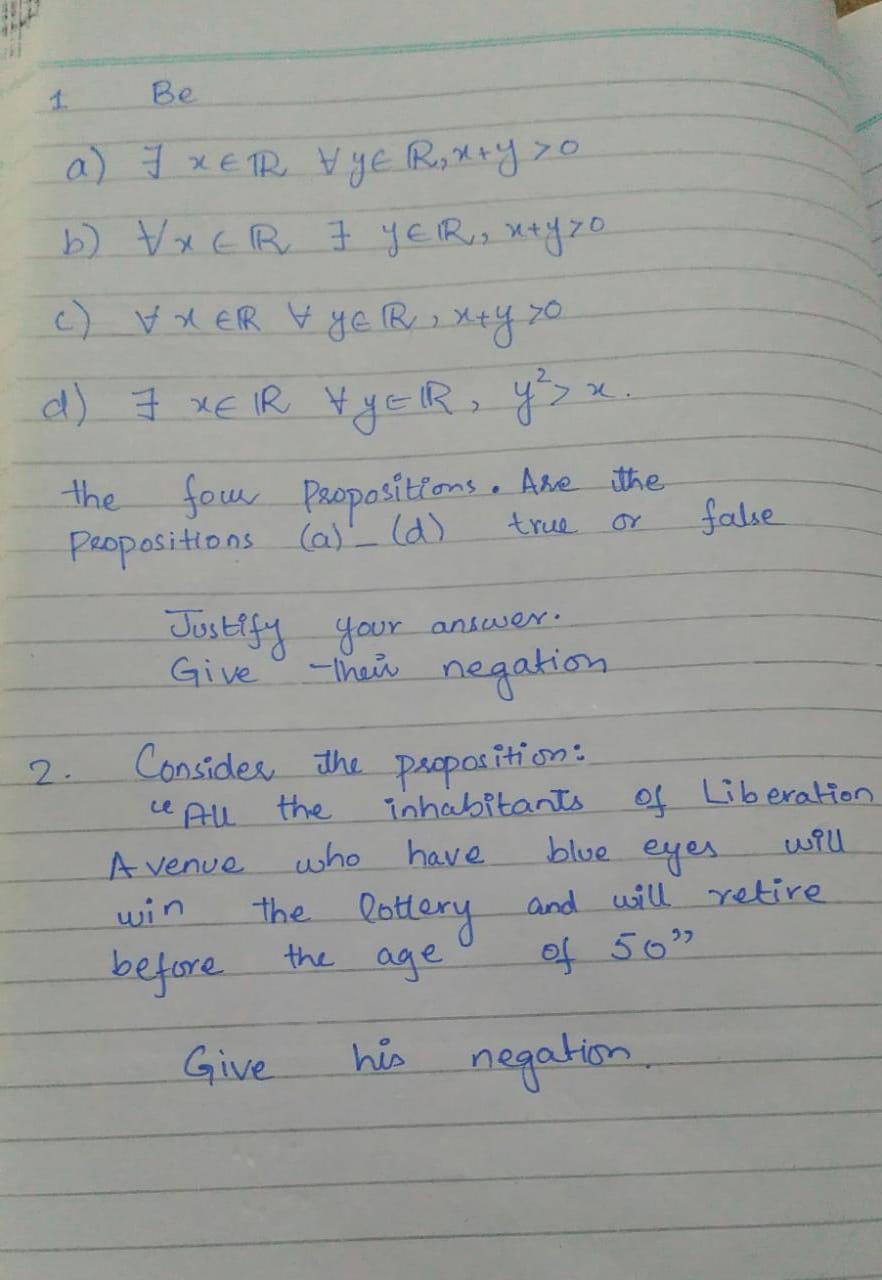 1 Be
a) ∃ x ∈ ℝ ∀ y ∈ ℝ, x+y >0
b) ∀x ∈ ℝ ∃ y ∈ ℝ, x+y>0
c) ∀ x ∈ ℝ ∀ y ∈ ℝ, x+y >0
d) ∃ x ∈ ℝ ∀ y ∈ ℝ, y²> x.
the four Propositions. Are the
Propositions (a) - (d) true or false
Justify your answer.
Give their negation
2. Consider the proposition:
“All the inhabitants of Liberation
Avenue who have blue eyes will
win the lottery and will retire
before the age of 50”
Give his negation.